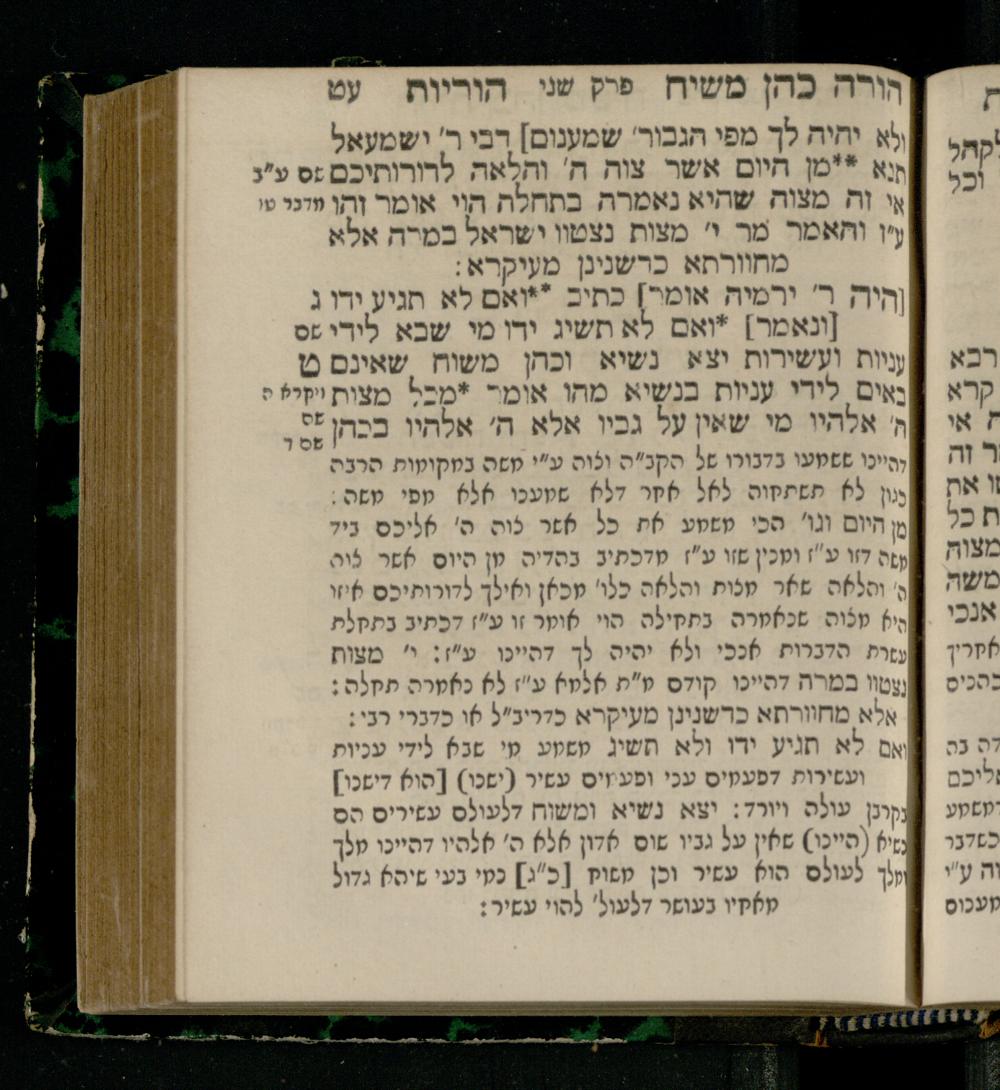 הורה כהן משיח פרק שני הוריות עט
ולא יהיה לך מפי הגבור׳ שמענום] דבי ר׳ ישמעאל
תנא **מן היום אשר צוה ה׳ והלאה לדורותיכם שם ע״ב
אי זה מצוה שהיא נאמרה בתחלה הוי אומר זהו מדבר טו
ע״ז והאמר מר י׳ מצות נצטוו ישראל במרה אלא
מחוורתא כדשנינן מעיקרא:
[היה ר׳ ירמיה אומר] כתיב **ואם לא תגיע ידו ג
[ונאמר] *ואם לא תשיג ידו מי שבא לידי שם
עניות ועשירות יצא נשיא וכהן משוח שאינם ט
באים לידי עניות בנשיא מהו אומר *מכל מצות ויקרא ה
ה׳ אלהיו מי שאין על גביו אלא ה׳ אלהיו בכהן שם
שם ד
דהיינו ששמעו בדבורו של הקב״ה וצוה ע״י משה במקומות הרבה
כגון לא תשתחוה לאל אחר דלא שמענו אלא מפי משה:
מן היום וגו׳ הכי משמע את כל אשר צוה ה׳ אליכם ביד
משה דזו ע״ז ומנין שזו ע״ז מדכתיב בהדיה מן היום אשר צוה
ה׳ והלאה שאר מצות והלאה כלו׳ מכאן ואילך לדורותיכם איזו
היא מצוה שנאמרה בתחילה הוי אומר זו ע״ז דכתיב בתחלת
עשרת הדברות אנכי ולא יהיה לך דהיינו ע״ז: י׳ מצות
נצטוו במרה דהיינו קודם מ״ת אלמא ע״ז לא נאמרה תחלה:
אלא מחוורתא כדשנינן מעיקרא כדריב״ל או כדברי רבי:
ואם לא תגיע ידו ולא תשיג משמע מי שבא לידי עניות
ועשירות דפעמים עני ופעמים עשיר (ישנו) [הוא דישנו]
בקרבן עולה ויורד: יצא נשיא ומשוח דלעולם עשירים הם
נשיא (היינו) שאין על גביו שום אדון אלא ה׳ אלהיו דהיינו מלך
ומלך לעולם הוא עשיר וכן משוח [כ״ג] נמי בעי שיהא גדול
מאחיו בעושר דלעול׳ להוי עשיר:
ת
לקהל
וכל
רבא
קרא
ת אי
ר זה
שו את
ת כל
מצוה
משה
אנכי
אחריך
בהכיס
דה בה
אליכם
דמשמע
כשדבר
וה ע״י
מענום